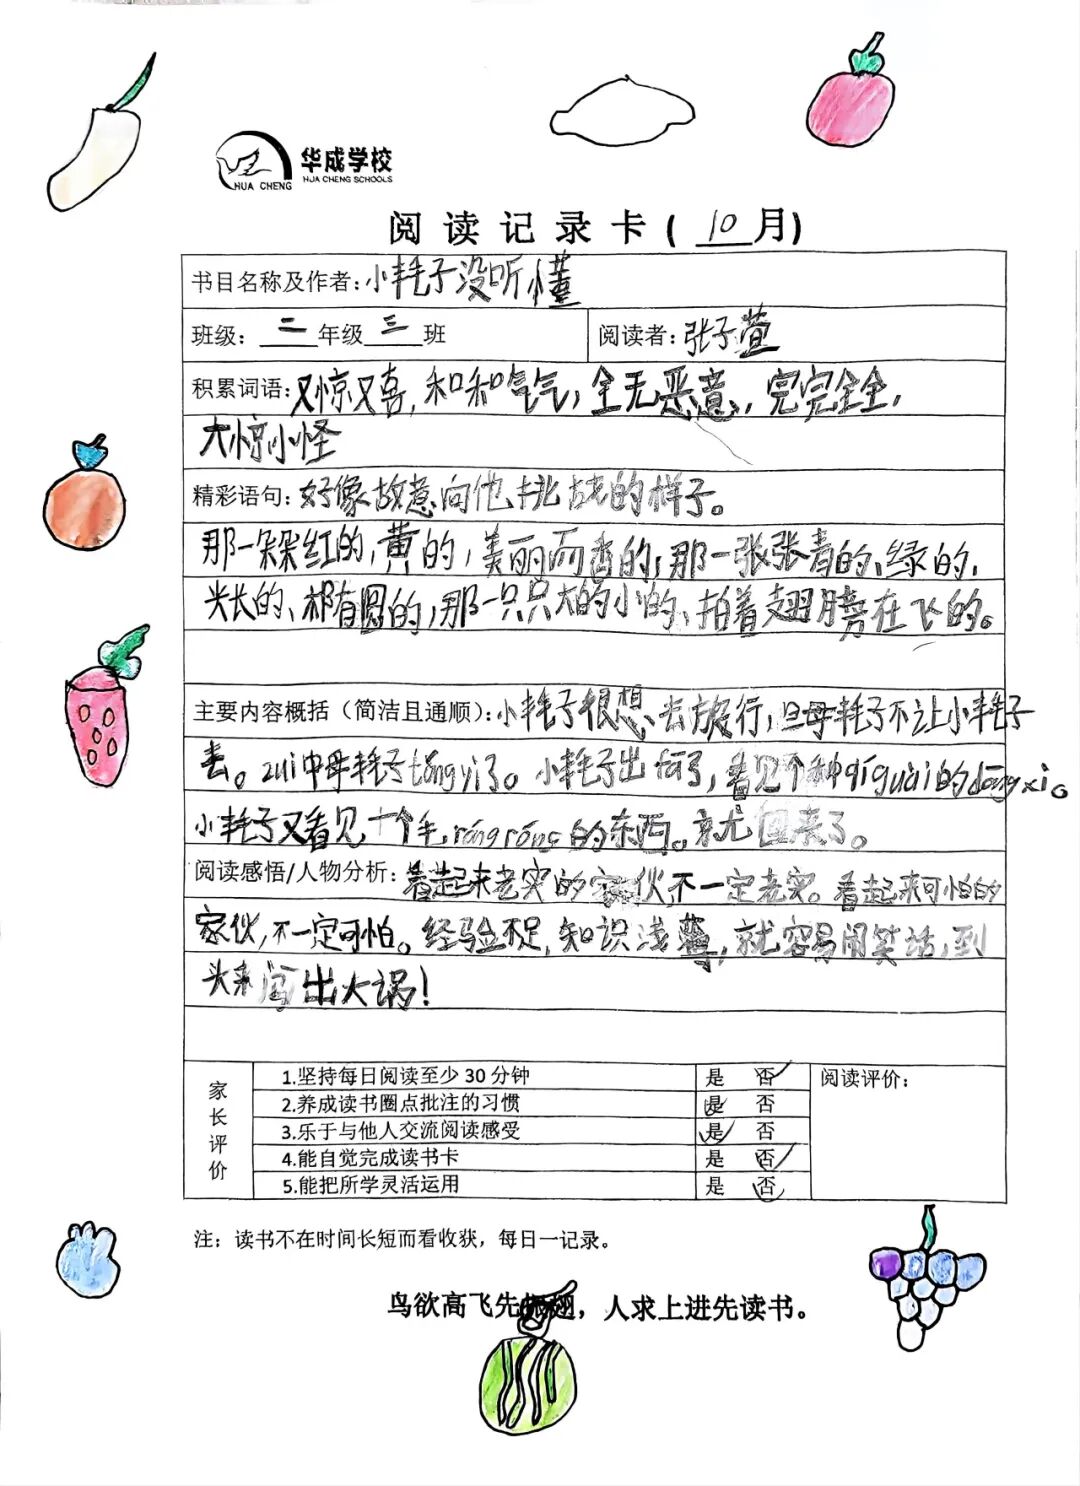 华成学校
HUA CHENG SCHOOLS
HUA CHENG
阅读记录卡( 10月)
书目名称及作者:小耗子没听懂
班级: 二 年级 三 班 阅读者: 张子萱
积累词语:又惊又喜,和和气气,全无恶意,完完全全,
大惊小怪
精彩语句:好像故意向他挑战的样子。
那一朵朵红的,黄的,美丽而香的,那一张张青的、绿的,
尖长的、椭圆的,那一只只大的小的、拍着翅膀在飞的。
主要内容概括(简洁且通顺):小耗子很想去旅行,但母耗子不让小耗子
去。zuì中母耗子tóng yì了。小耗子出fā了,看见个种qíguài的dōng xi。
小耗子又看见十个毛róng róng的东西。就回来了。
阅读感悟/人物分析:看起来老实的家伙,不一定老实。看起来可怕的
家伙,不一定可怕。经验不足,知识浅薄,就容易闹笑话,到
头来闯出大祸!
家长评价
1.坚持每日阅读至少30分钟 是 否
2.养成读书圈点批注的习惯 是 否
3.乐于与他人交流阅读感受 是 否
4.能自觉完成读书卡 是 否
5.能把所学灵活运用 是 否
阅读评价:
注:读书不在时间长短而看收获,每日一记录。
鸟欲高飞先振翅,人求上进先读书。